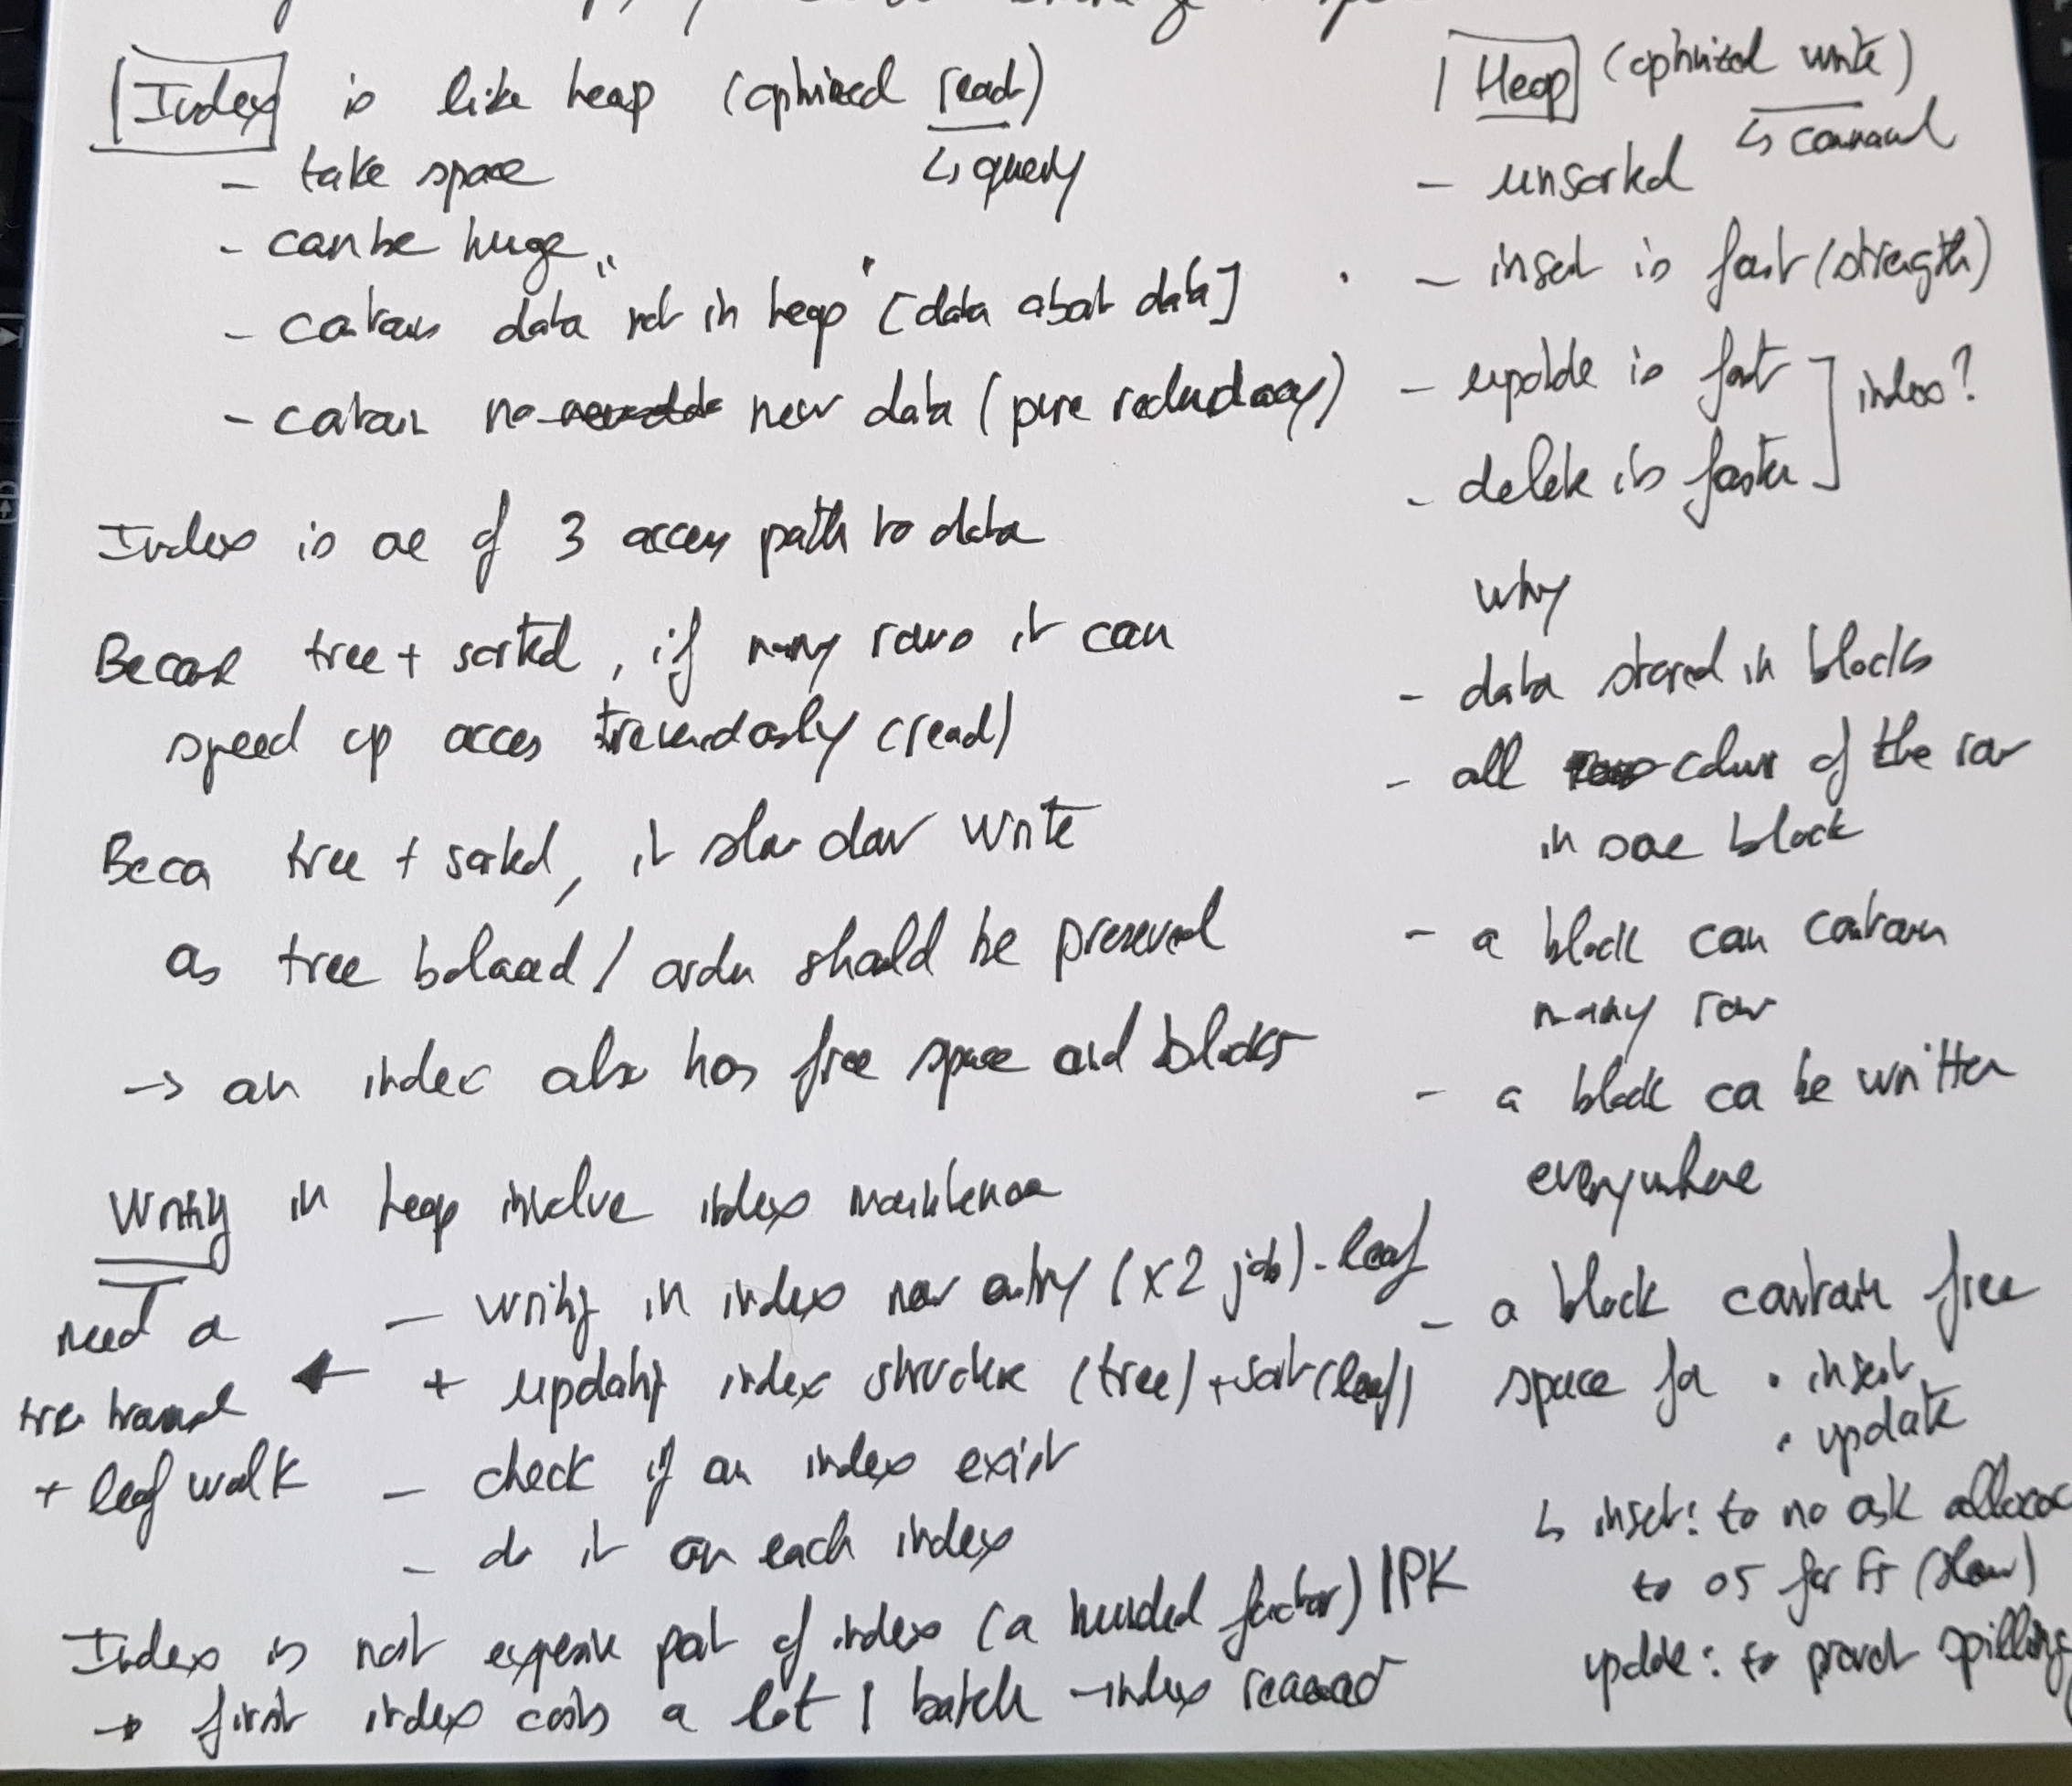 Index is like heap (optimized read)
↳ query
- take space
- can be huge
- contains data "not in heap" [data about data]
- contain no new data (pure redundancy)
Index is one of 3 access path to data
Because tree + sorted, if many rows it can
speed up access tremendously (read)
Because tree + sorted, it slow down write
as tree balanced / order should be preserved
→ an index also has free space and blocks
Writing in heap involve index maintenance
- writing in index new entry (x2 job) - leaf
+ updating index structure (tree) + sort (leaf)
need a
tree traversal
+ leaf walk
- check if an index exist
- do it on each index
Index is most expensive part of index (a hundred factor) | PK
→ first index costs a lot | batch - index
Heap (optimized write)
↳ command
- unsorted
- insert is fast (strength)
- update is fast
- delete is faster
index?
why
- data stored in blocks
- all column of the row
in one block
- a block can contain
many row
- a block can be written
everywhere
- a block contain free
space for • insert
• update
↳ insert: to no ask
to OS for FS (slow)
update: to prevent spilling